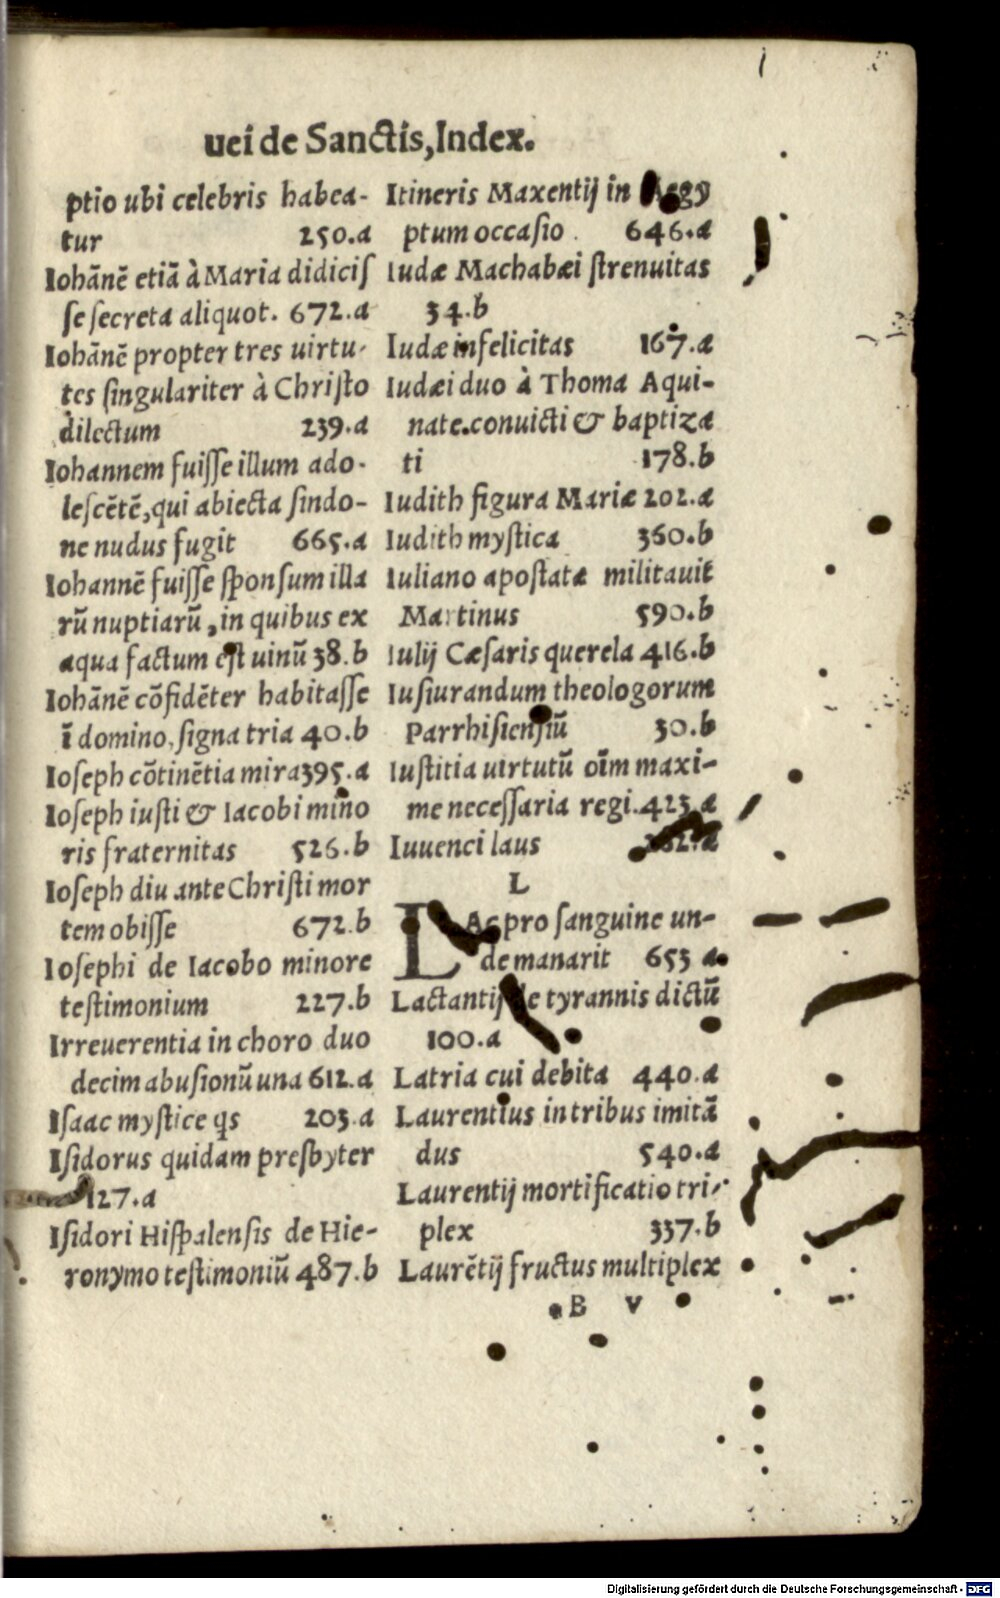 uei de Sanctis, Index.
ptio ubi celebris habea-
tur 250.a
Iohānē etiā à Maria didicis
se secreta aliquot. 672.a
Iohānē propter tres uirtu-
tes singulariter à Christo
dilectum 239.a
Iohannem fuisse illum ado-
lescētē, qui abiecta sindo-
ne nudus fugit 665.a
Iohannē fuisse sponsum illa
rū nuptiarū, in quibus ex
aqua factum est uinū 38.b
Iohānē cōfidēter habitasse
ī domino, signa tria 40.b
Ioseph cōtinētia mira 395.a
Ioseph iusti & Iacobi mino
ris fraternitas 526.b
Ioseph diu ante Christi mor
tem obisse 672.b
Iosephi de Iacobo minore
testimonium 227.b
Irreuerentia in choro duo
decim abusionū una 612.a
Isaac mystice qs 203.a
Isidorus quidam presbyter
127.a
Isidori Hispalensis de Hie-
ronymo testimoniū 487.b
Itineris Maxentij in Aegy
ptum occasio 646.a
Iudæ Machabæi strenuitas
34.b
Iudæ infelicitas 167.a
Iudæi duo à Thoma Aqui-
nate.conuicti & baptiza
ti 178.b
Iudith figura Mariæ 202.a
Iudith mystica 360.b
Iuliano apostatæ militauit
Martinus 590.b
Iulij Cæsaris querela 416.b
Iusiurandum theologorum
Parrhisiensiū 30.b
Iustitia uirtutū oīm maxi-
me necessaria regi. 423.a
Iuuenci laus
L
LAc pro sanguine un-
de manarit 653 a.
Lactantij de tyrannis dictū
100.a
Latria cui debita 440.a
Laurentius in tribus imitā
dus 540.a
Laurentij mortificatio tri-
plex 337.b
Laurētij fructus multiplex
B V
Digitalisierung gefördert durch die Deutsche Forschungsgemeinschaft - DFG